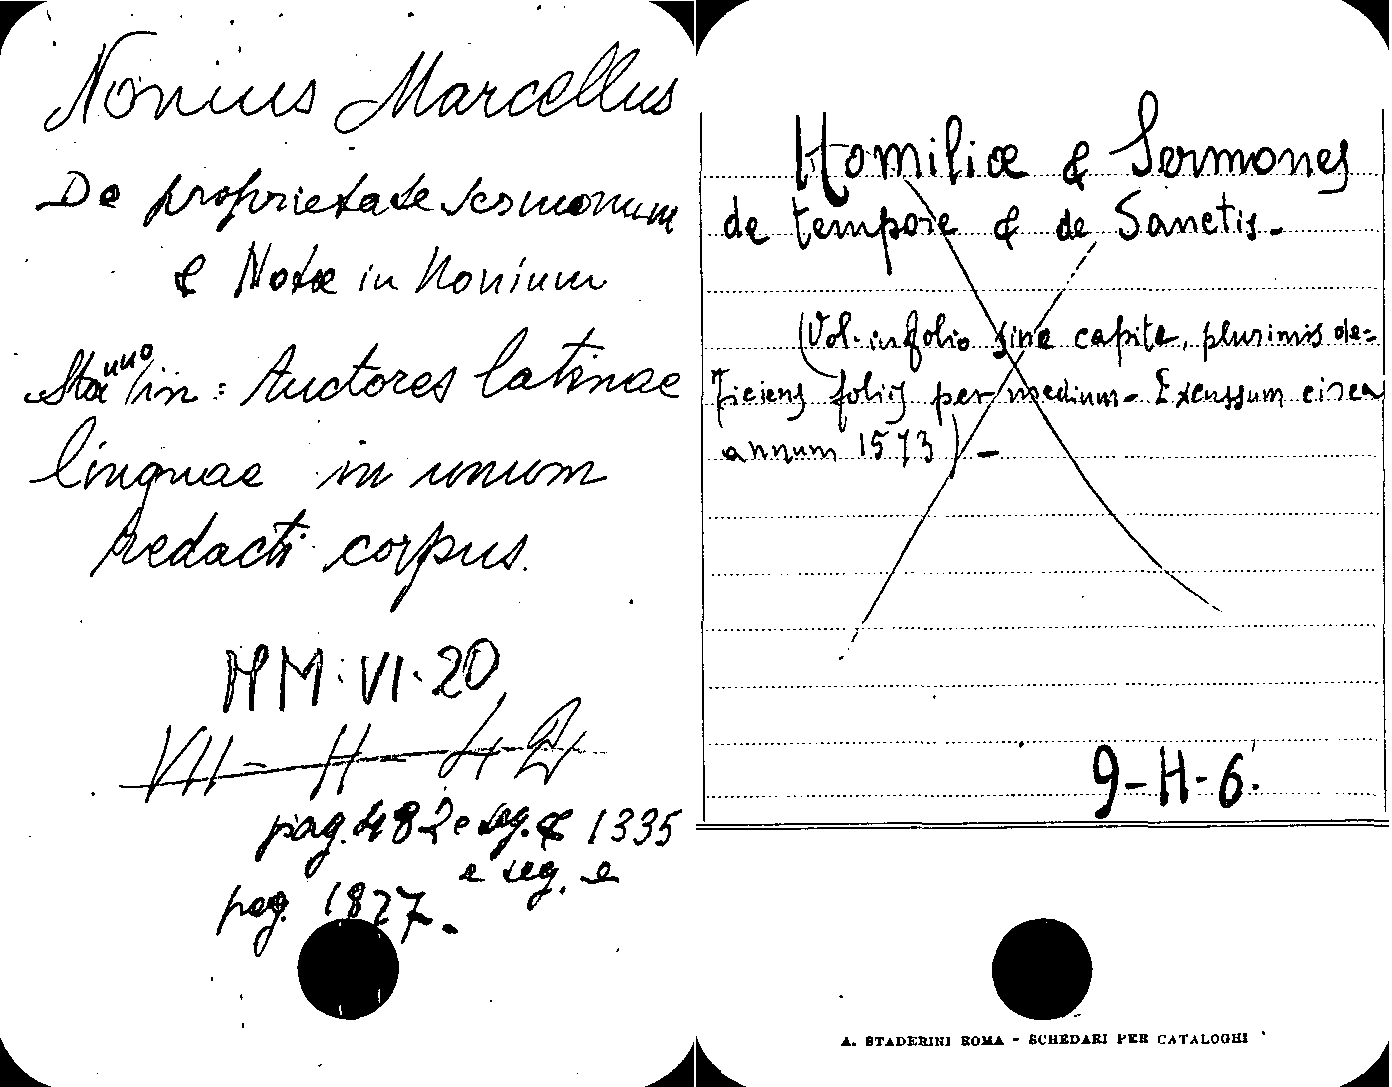 Nonius Marcellus
De proprietate sermonum
& Notæ in Nonium
Stanno in: Auctores latinae
linguae in unum
redacti corpus.
MM. VI. 20
VII - H - 42
pag. 482 e seg. & 1335
e seg. e
pag. 1827.
Homiliæ & Sermones
de tempore & de Sanctis.
(Vol. in folio sine capite, plurimis de=
ficiens foliis per medium. Excussum circa
annum 1573) -
9-H-6.
A. STADERINI ROMA - SCHEDARI PER CATALOGHI